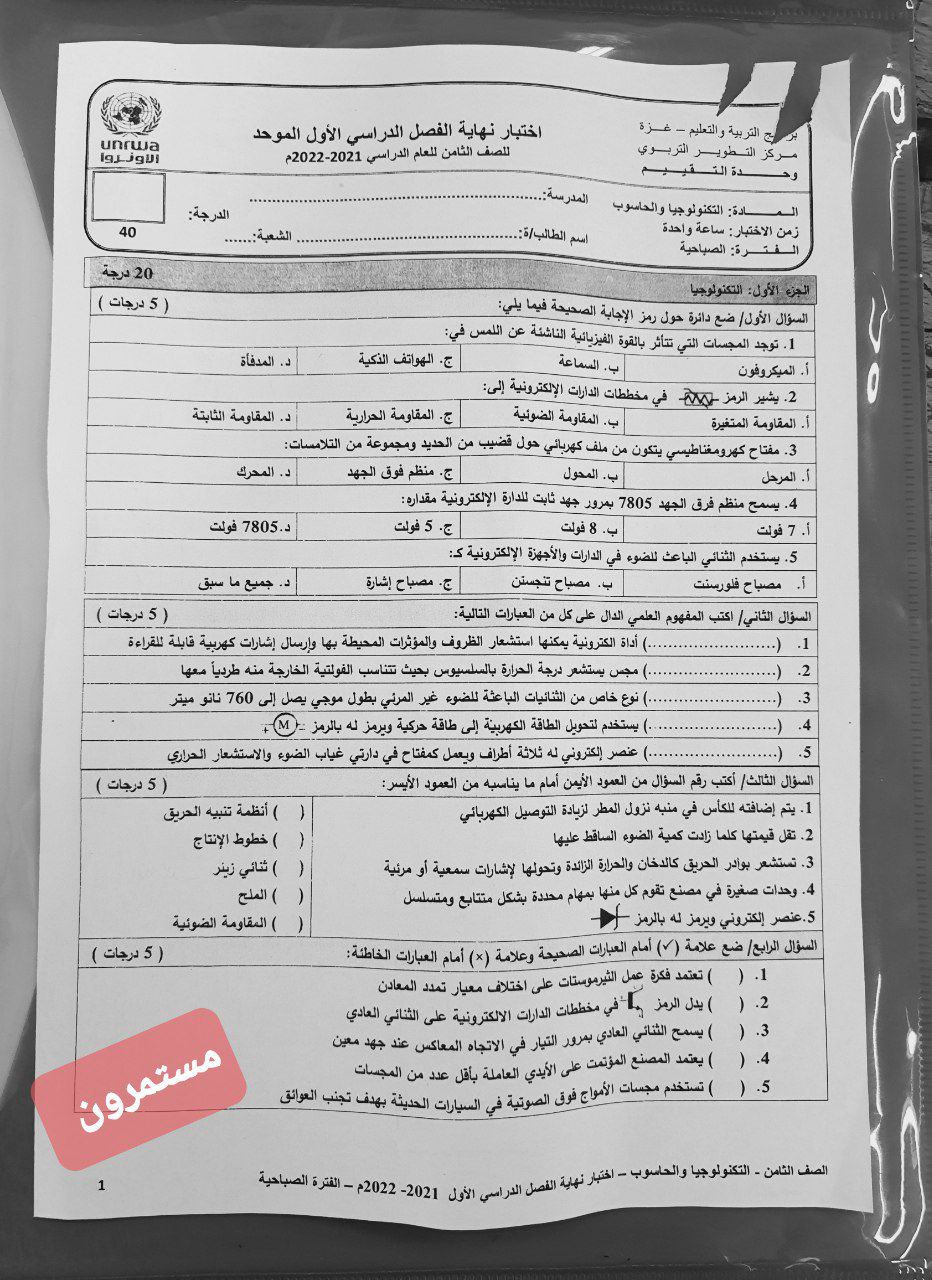 برنامج التربية والتعليم – غزة
مركز التطوير التربوي
وحدة التقييم
اختبار نهاية الفصل الدراسي الأول الموحد
للصف الثامن للعام الدراسي 2021-2022م
unrwa
الأونروا
المادة: التكنولوجيا والحاسوب
زمن الاختبار: ساعة واحدة
الفترة: الصباحية
المدرسة:......................................................
اسم الطالب/ة:.......................................... الشعبة:......
الدرجة:
40
الجزء الأول: التكنولوجيا 20 درجة
السؤال الأول/ ضع دائرة حول رمز الإجابة الصحيحة فيما يلي: ( 5 درجات )
1. توجد المجسات التي تتأثر بالقوة الفيزيائية الناشئة عن اللمس في:
أ. الميكروفون ب. السماعة ج. الهواتف الذكية د. المدفأة
2. يشير الرمز في مخططات الدارات الإلكترونية إلى:
أ. المقاومة المتغيرة ب. المقاومة الضوئية ج. المقاومة الحرارية د. المقاومة الثابتة
3. مفتاح كهرومغناطيسي يتكون من ملف كهربائي حول قضيب من الحديد ومجموعة من التلامسات:
أ. المرحل ب. المحول ج. منظم فوق الجهد د. المحرك
4. يسمح منظم فرق الجهد 7805 بمرور جهد ثابت للدارة الإلكترونية مقداره:
أ. 7 فولت ب. 8 فولت ج. 5 فولت د.7805 فولت
5. يستخدم الثنائي الباعث للضوء في الدارات والأجهزة الإلكترونية كـ:
أ. مصباح فلورسنت ب. مصباح تنجستن ج. مصباح إشارة د. جميع ما سبق
السؤال الثاني/ اكتب المفهوم العلمي الدال على كل من العبارات التالية: ( 5 درجات )
1. (.........................) أداة الكترونية يمكنها استشعار الظروف والمؤثرات المحيطة بها وإرسال إشارات كهربية قابلة للقراءة
2. (.........................) مجس يستشعر درجة الحرارة بالسلسيوس بحيث تتناسب الفولتية الخارجة منه طردياً معها
3. (.........................) نوع خاص من الثنائيات الباعثة للضوء غير المرئي بطول موجي يصل إلى 760 نانو ميتر
4. (.........................) يستخدم لتحويل الطاقة الكهربية إلى طاقة حركية ويرمز له بالرمز M
5. (.........................) عنصر إلكتروني له ثلاثة أطراف ويعمل كمفتاح في دارتي غياب الضوء والاستشعار الحراري
السؤال الثالث/ أكتب رقم السؤال من العمود الأيمن أمام ما يناسبه من العمود الأيسر: ( 5 درجات )
1. يتم إضافته للكأس في منبه نزول المطر لزيادة التوصيل الكهربائي ( ) أنظمة تنبيه الحريق
2. تقل قيمتها كلما زادت كمية الضوء الساقط عليها ( ) خطوط الإنتاج
3. تستشعر بوادر الحريق كالدخان والحرارة الزائدة وتحولها لإشارات سمعية أو مرئية ( ) ثنائي زينر
4. وحدات صغيرة في مصنع تقوم كل منها بمهام محددة بشكل متتابع ومتسلسل ( ) الملح
5.عنصر إلكتروني ويرمز له بالرمز ( ) المقاومة الضوئية
السؤال الرابع/ ضع علامة (✓) أمام العبارات الصحيحة وعلامة (×) أمام العبارات الخاطئة: ( 5 درجات )
1. ( ) تعتمد فكرة عمل الثيرموستات على اختلاف معيار تمدد المعادن
2. ( ) يدل الرمز في مخططات الدارات الالكترونية على الثنائي العادي
3. ( ) يسمح الثنائي العادي بمرور التيار في الاتجاه المعاكس عند جهد معين
4. ( ) يعتمد المصنع المؤتمت على الأيدي العاملة بأقل عدد من المجسات
5. ( ) تستخدم مجسات الأمواج فوق الصوتية في السيارات الحديثة بهدف تجنب العوائق
مستمرون
الصف الثامن - التكنولوجيا والحاسوب – اختبار نهاية الفصل الدراسي الأول 2021- 2022م – الفترة الصباحية
1